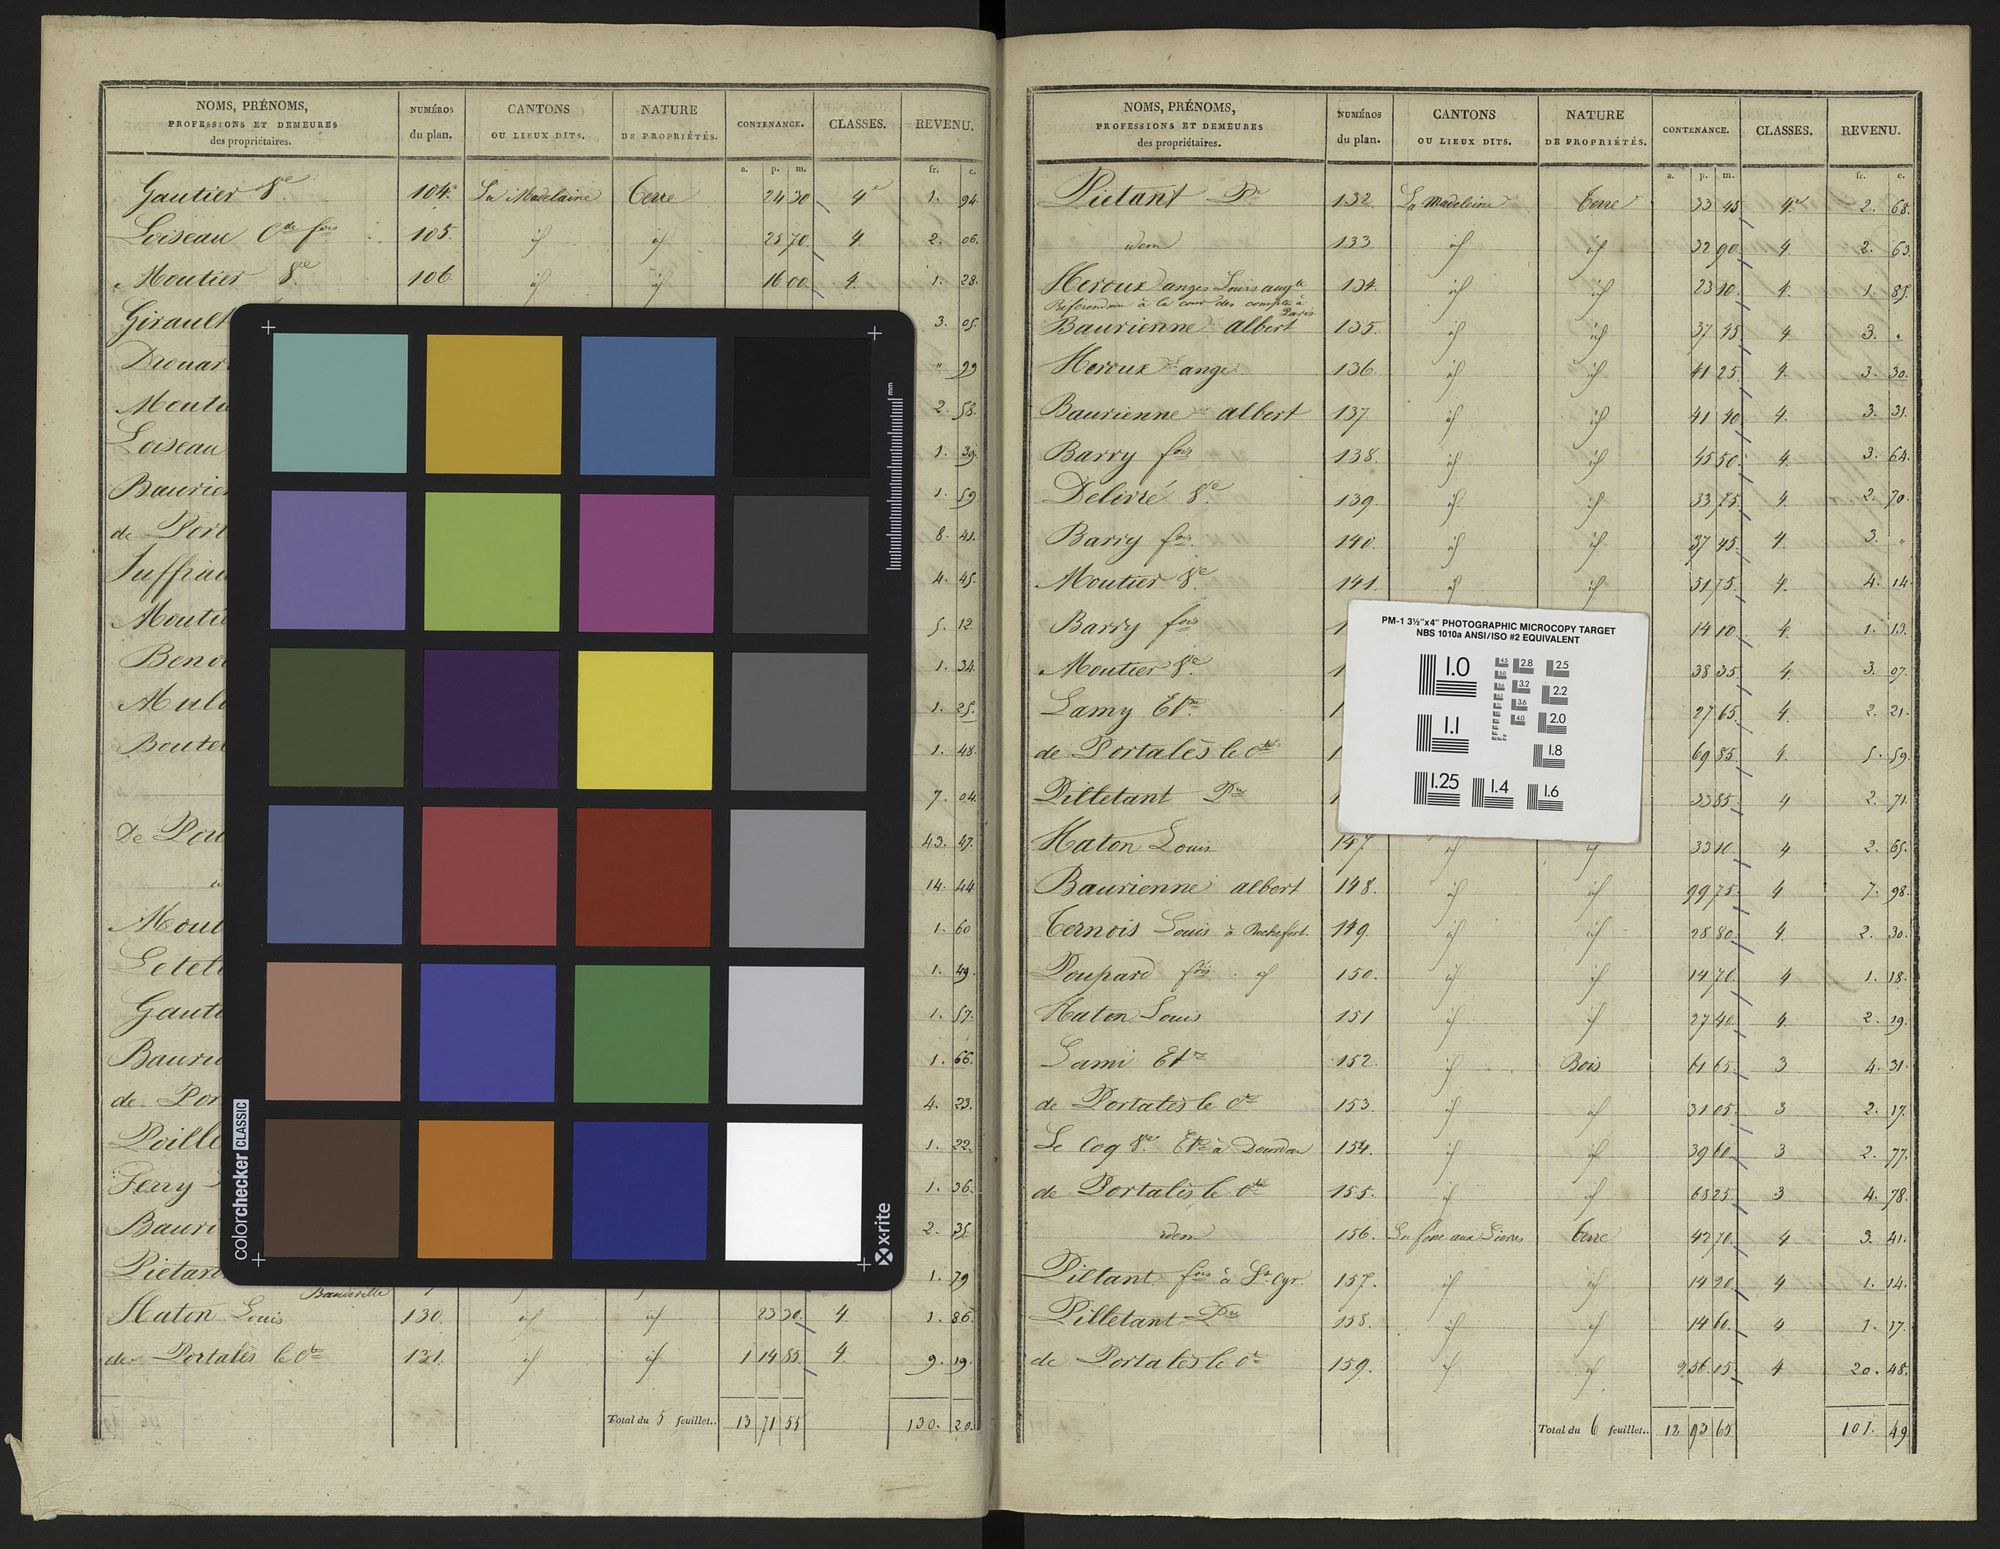 NOMS, PRÉNOMS, PROFESSIONS ET DEMEURES des propriétaires. NUMÉROS du plan. CANTONS OU LIEUX DITS. NATURE DE PROPRIÉTÉS. CONTENANCE. CLASSES. REVENU.
a. p. m. fr. c.
Gautier 104. La Madelaine Terre 24 30 4e 1. 94
Loiseau 105. id id 25 70 4. 2. 06.
Moutier 106 id id 16 00 4. 1. 28.
Girault 3. 05.
Drouar " 99
Moutie 2. 58.
Loiseau 1. 39.
Baurien 1. 59.
de Port 8. 41.
Juffrau 4. 45.
Moutie 5. 12.
Beno 1. 34.
1. 25.
Boute 1. 48.
7. 04.
De Por 43. 47.
14. 44
Mout 1. 60
1. 49.
Gaut 1. 57.
Bauri 1. 66.
de Por 4. 23.
Poille 1. 22.
Ferry 1. 36.
Bauri 2. 35.
Pietan 1. 79
Bandeville
Haton Louis 130. id id 23 30. 4. 1. 86.
de Portalès le Cte 131. id id 1 14 85 4. 9. 19.
Total du 5 feuillet.. 13 71 55 130. 20.
colorchecker CLASSIC
x-rite
mm
NOMS, PRÉNOMS, PROFESSIONS ET DEMEURES des propriétaires. NUMÉROS du plan. CANTONS OU LIEUX DITS. NATURE DE PROPRIÉTÉS. CONTENANCE. CLASSES. REVENU.
a. p. m. fr. c.
Pietant Pre 132. La Madeleine Terre 33 45. 4e 2. 68.
idem 133 id id 32 90. 4. 2. 63.
Heroux anges Louis augte 134. id id 23 10. 4. 1. 85.
Référendaire à la cour des comptes à Paris
Baurienne albert 135. id id 37 45. 4. 3. "
Heroux ange 136. id id 41 25. 4. 3. 30.
Baurienne albert 137. id id 41 40. 4. 3. 31.
Barry fois 138. id id 45 50. 4. 3. 64.
Delivré 139. id id 33 75. 4. 2. 70.
Barry fois 140. id id 37 45. 4. 3. "
Moutier 141. id id 51 75. 4. 4. 14
Barry fois 1 14 10 4. 1. 13.
Moutier 1 38 35. 4. 3. 07.
Lamy Etne 1 27 65. 4. 2. 21.
de Portalès le Cte 1 69 85. 4. 5. 59.
Pilletant Pre 1 33 85. 4 2. 71.
Haton Louis 147 id id 33 10. 4 2. 65.
Baurienne albert 148. id id 99 75. 4 7. 98.
Ternois Louis à Rochefort. 149. id id 28 80. 4. 2. 30.
Poupard fois id 150. id id 14 70. 4 1. 18.
Haton Louis 151 id id 27 40. 4. 2. 19.
Lami Etne 152. id Bois 61 65. 3 4. 31.
de Portalès le Cte 153. id id 31 05. 3 2. 17.
Le Coq à Dourdan 154. id id 39 60. 3 2. 77.
de Portalès le Cte 155. id id 68 25. 3 4. 78.
idem 156. Terre 42 70. 4 3. 41.
Piltant fois à St Cyr. 157. id id 14 20. 4 1. 14.
Pilletant Pre 158. id id 14 60. 4 1. 17.
de Portalès le Cte 159. id id 2 56 15. 4 20. 48.
Total du 6 feuillet.. 12 93 65 101. 49
PM-1 3½"x4" PHOTOGRAPHIC MICROCOPY TARGET
NBS 1010a ANSI/ISO #2 EQUIVALENT
1.0 4.5 2.8 2.5
5.0 3.2 2.2
5.6 3.6
6.3 4.0 2.0
1.1 1.8
1.25 1.4 1.6